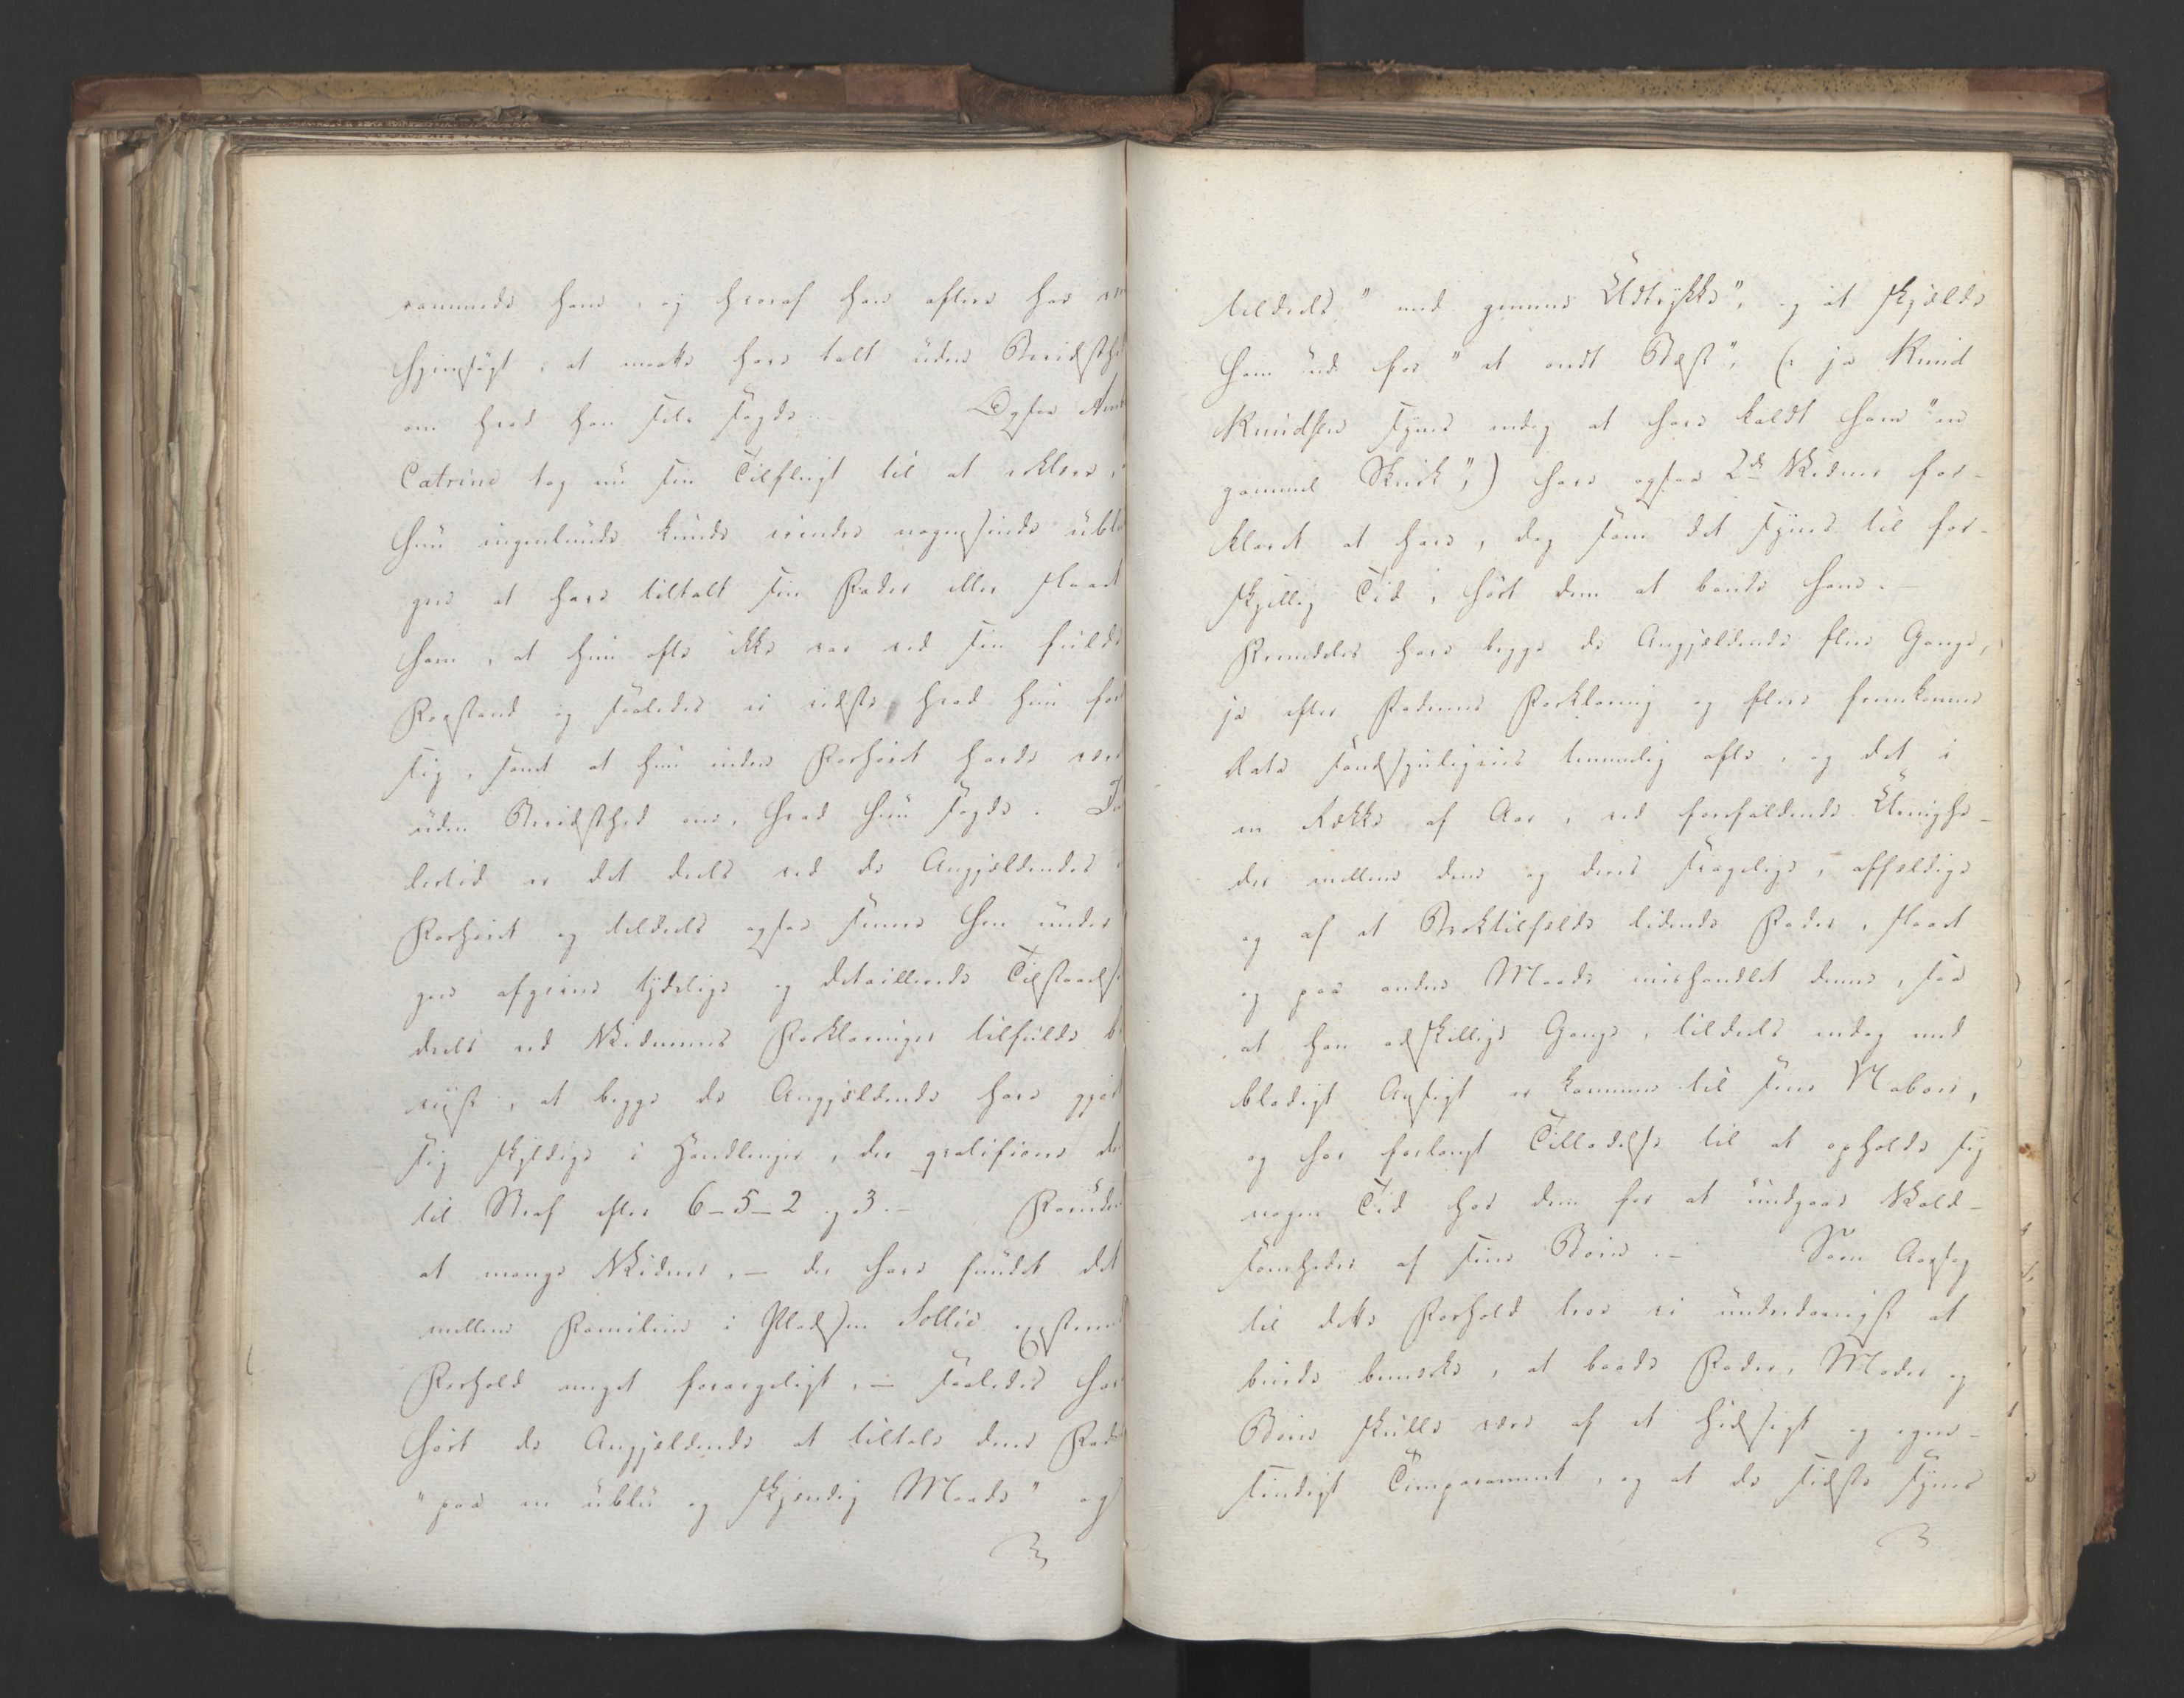 rammede ham, og hvoraf han oftere har
hjemsøgt, at maatte have talt uden Bevidsthe
om hvad han selv sagde. Ogsaa Ann
Catrine tog nu sin Tilflugt til at erklære,
hun ingenlunde kunde erindre nogensinde ublu
gen at have tiltalt sin Fader eller slaaet
ham, at hun ofte ikke var ved sin fulde
Forstand og saaledes ei vidste hvad hun for
sig, samt at hun under Forhøret havde vær
uden Bevidsthed om, hvad hun sagde. Im
lertid er det deels ved de Angjældendes i
Forhøret og tildeels ogsaa senere hen under
gen afgivne tydelige og detaillerede Tilstaaels
deels ved Vidnernes Forklaringer tilfulde be
viist, at begge de Angjældende have gjort
sig skyldige i Handlinger, der qvalificere dem
til Straf efter 6-5-2 og 3.- Foruden
at mange Vidner, - der have fundet det
mellem Familien i Pladsen Sollie existerend
Forhold meget forargeligt, - saaledes har
hørt de Angjældende at tiltale deres Fader
"paa en ublu og skjændig Maade" og
tildeels "med gemene Udtrykke", og at skjælde
ham ud for "et ondt Bæst", (: ja Knud
Knudsen synes endog at have kaldt ham "en
gammel Skurk",) have ogsaa 2de Vidner for-
klaret at have, dog som det synes til for-
skjellig Tid, hørt dem at bande ham. -
Fremdeles have begge de Angjældende flere Gange,
ja efter Faderens Forklaring og flere fremkomne
Data sandsynligviis temmelig ofte, og det i
en Række af Aar, ved forefaldende Uenighe-
der mellem dem og deres svagelige, affældige
og af et Broktilfælde lidende Fader, slaaet
og paa anden Maade mishandlet denne, saa
at han adskillige Gange, tildeels endog med
blodigt Ansigt er kommen til sine Naboer,
og har forlangt Tilladelse til at opholde sig
nogen Tid hos dem for at undgaae Vold-
somheder af sine Børn. - Som Aarsag
til dette Forhold troe vi underdanigst at
burde bemærke, at baade Fader, Moder og
Børn skulle være af et hidsigt og egen-
sindigt Temperament, og at de sidste synes